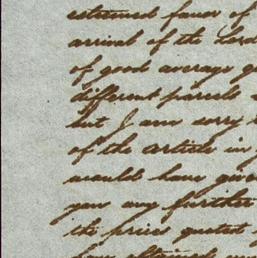 esteemed favor of
arrival of the Lord
of good average
different parcels
but I am sorry
of the article in
would have give
you any further
the prices quoted
have obtained